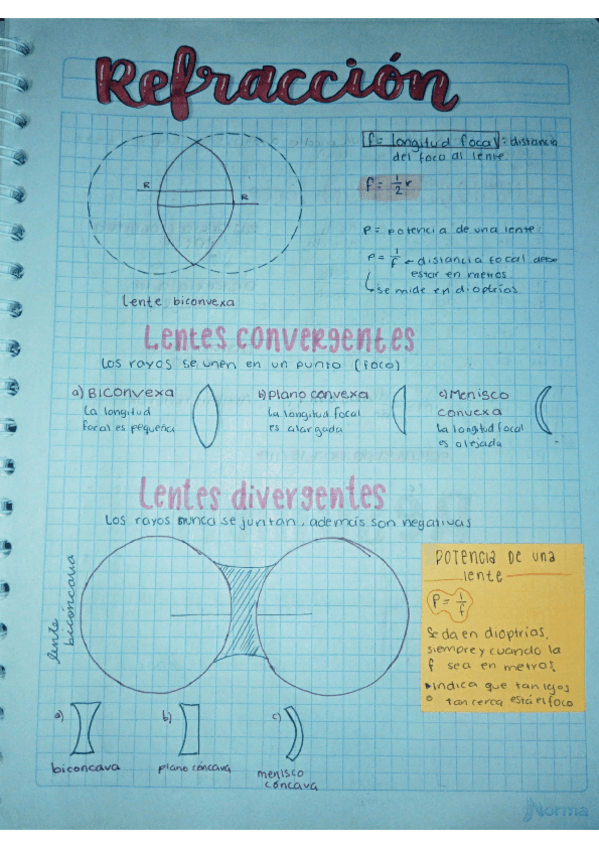 Refracción
f = longitud focal : distancia
del foco al lente
f = 1/2 r
R
R
P = potencia de una lente
P = 1/f ← distancia focal debe
estar en menos
se mide en dioptrios
lente biconvexa
Lentes convergentes
Los rayos se unen en un punto (foco)
a) Biconvexa
La longitud
focal es pequeña
b) plano convexa
La longitud focal
es alargada
c) Menisco
convexa
la longitud focal
es alejada
Lentes divergentes
Los rayos nunca se juntan, además son negativas
lente
bicóncava
Potencia de una
lente
P = 1/f
Se da en dioptrios,
siempre y cuando la
f sea en metros
Indica que tan lejos
o tan cerca está el foco
a)
biconcava
b)
plano cóncava
c)
menisco
cóncava
Norma